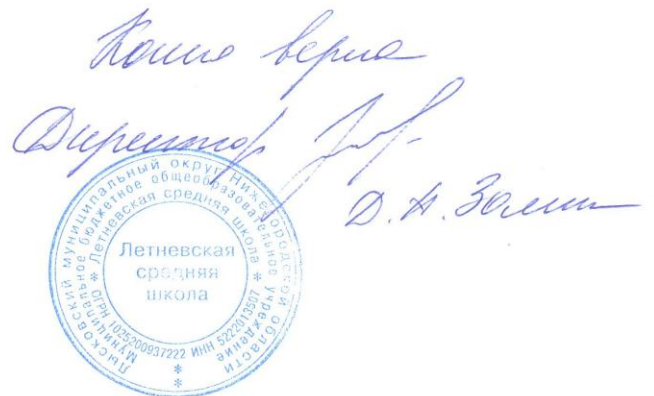 Копия верна
Директор
Д. Н. Зотин
Лысковский муниципальный округ Нижегородской области
Муниципальное бюджетное общеобразовательное учреждение
* Летневская средняя школа *
ОГРН 1025200937222 ИНН 5222013507
Летневская
средняя
школа